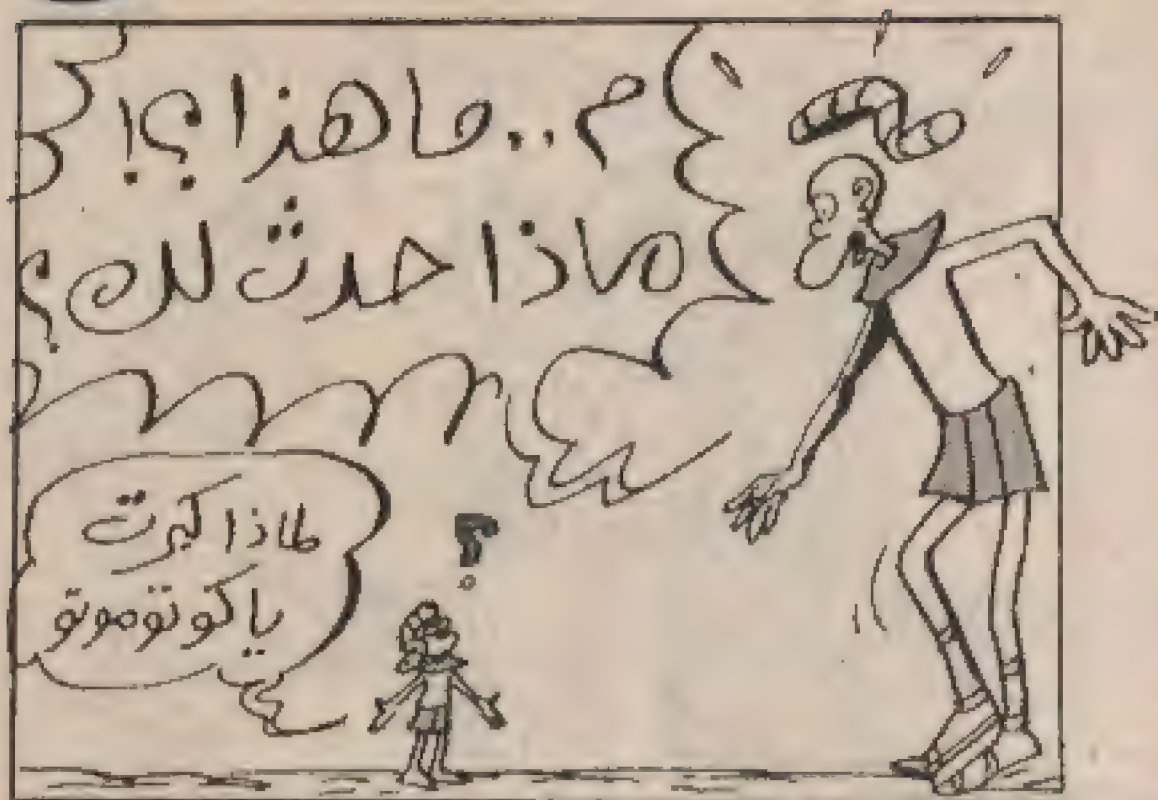 م.. ما هذا؟!
ماذا حدث لك؟
؟
لماذا كبرت
يا كوتوموتو